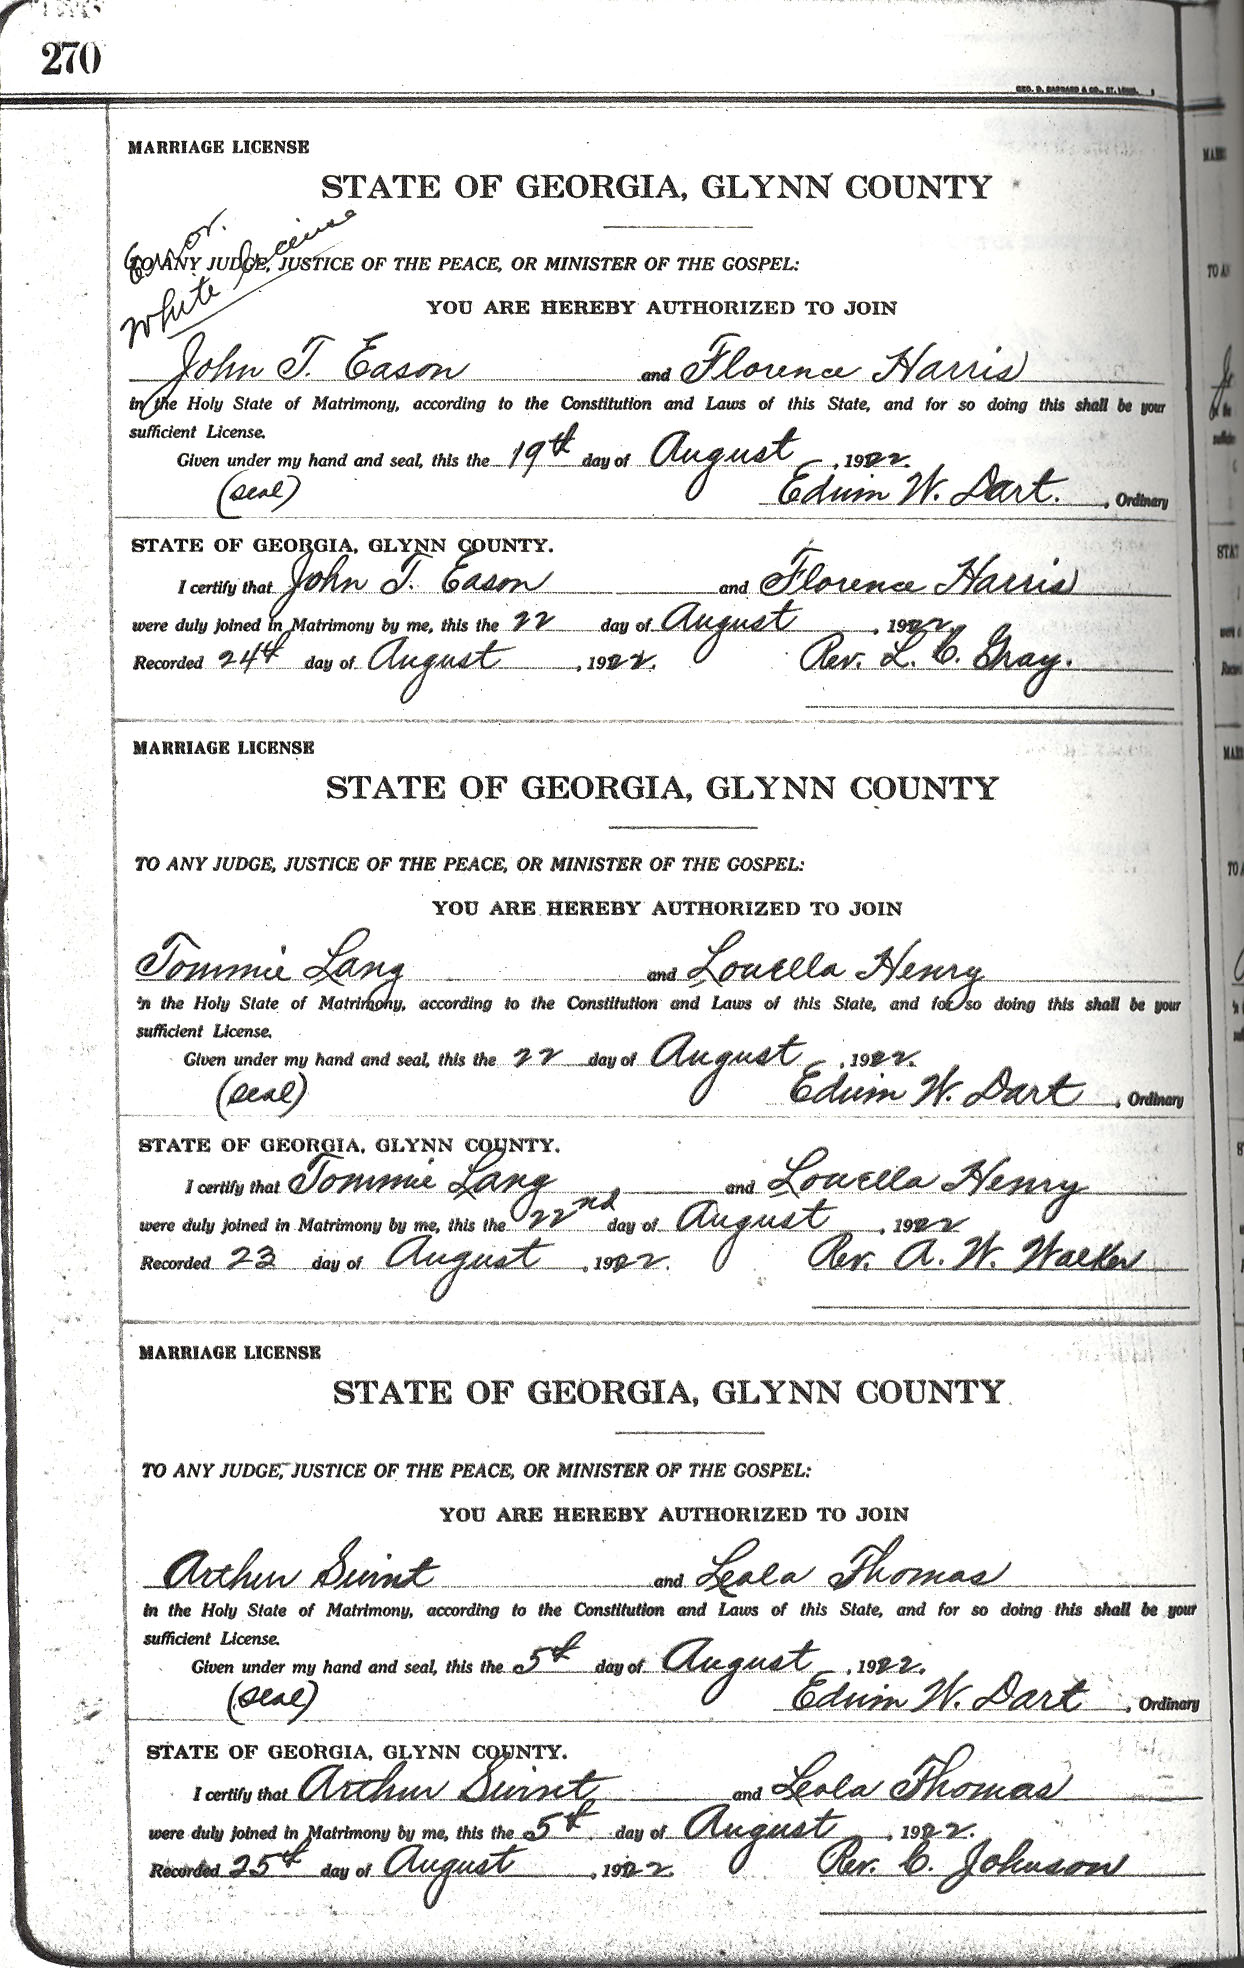 270
GEO. D. BARNARD & CO., ST. LOUIS.
MARRIAGE LICENSE
STATE OF GEORGIA, GLYNN COUNTY
Error.
White License
TO ANY JUDGE, JUSTICE OF THE PEACE, OR MINISTER OF THE GOSPEL:
YOU ARE HEREBY AUTHORIZED TO JOIN
John T. Eason and Florence Harris
in the Holy State of Matrimony, according to the Constitution and Laws of this State, and for so doing this shall be your
sufficient License.
Given under my hand and seal, this the 19th day of August, 1922.
(seal) Edwin W. Dart., Ordinary
STATE OF GEORGIA, GLYNN COUNTY.
I certify that John T. Eason and Florence Harris
were duly joined in Matrimony by me, this the 22 day of August, 1922.
Recorded 24th day of August, 1922. Rev. L. C. Gray.
MARRIAGE LICENSE
STATE OF GEORGIA, GLYNN COUNTY
TO ANY JUDGE, JUSTICE OF THE PEACE, OR MINISTER OF THE GOSPEL:
YOU ARE HEREBY AUTHORIZED TO JOIN
Tommie Lang and Louella Henry
in the Holy State of Matrimony, according to the Constitution and Laws of this State, and for so doing this shall be your
sufficient License.
Given under my hand and seal, this the 22 day of August, 1922.
(seal) Edwin W. Dart, Ordinary
STATE OF GEORGIA, GLYNN COUNTY.
I certify that Tommie Lang and Louella Henry
were duly joined in Matrimony by me, this the 22nd day of August, 1922
Recorded 23 day of August, 1922. Rev. A. W. Walker
MARRIAGE LICENSE
STATE OF GEORGIA, GLYNN COUNTY
TO ANY JUDGE, JUSTICE OF THE PEACE, OR MINISTER OF THE GOSPEL:
YOU ARE HEREBY AUTHORIZED TO JOIN
Arthur Swint and Leola Thomas
in the Holy State of Matrimony, according to the Constitution and Laws of this State, and for so doing this shall be your
sufficient License.
Given under my hand and seal, this the 5th day of August, 1922.
(seal) Edwin W. Dart, Ordinary
STATE OF GEORGIA, GLYNN COUNTY.
I certify that Arthur Swint and Leola Thomas
were duly joined in Matrimony by me, this the 5th day of August, 1922.
Recorded 25th day of August, 1922. Rev. C. Johnson